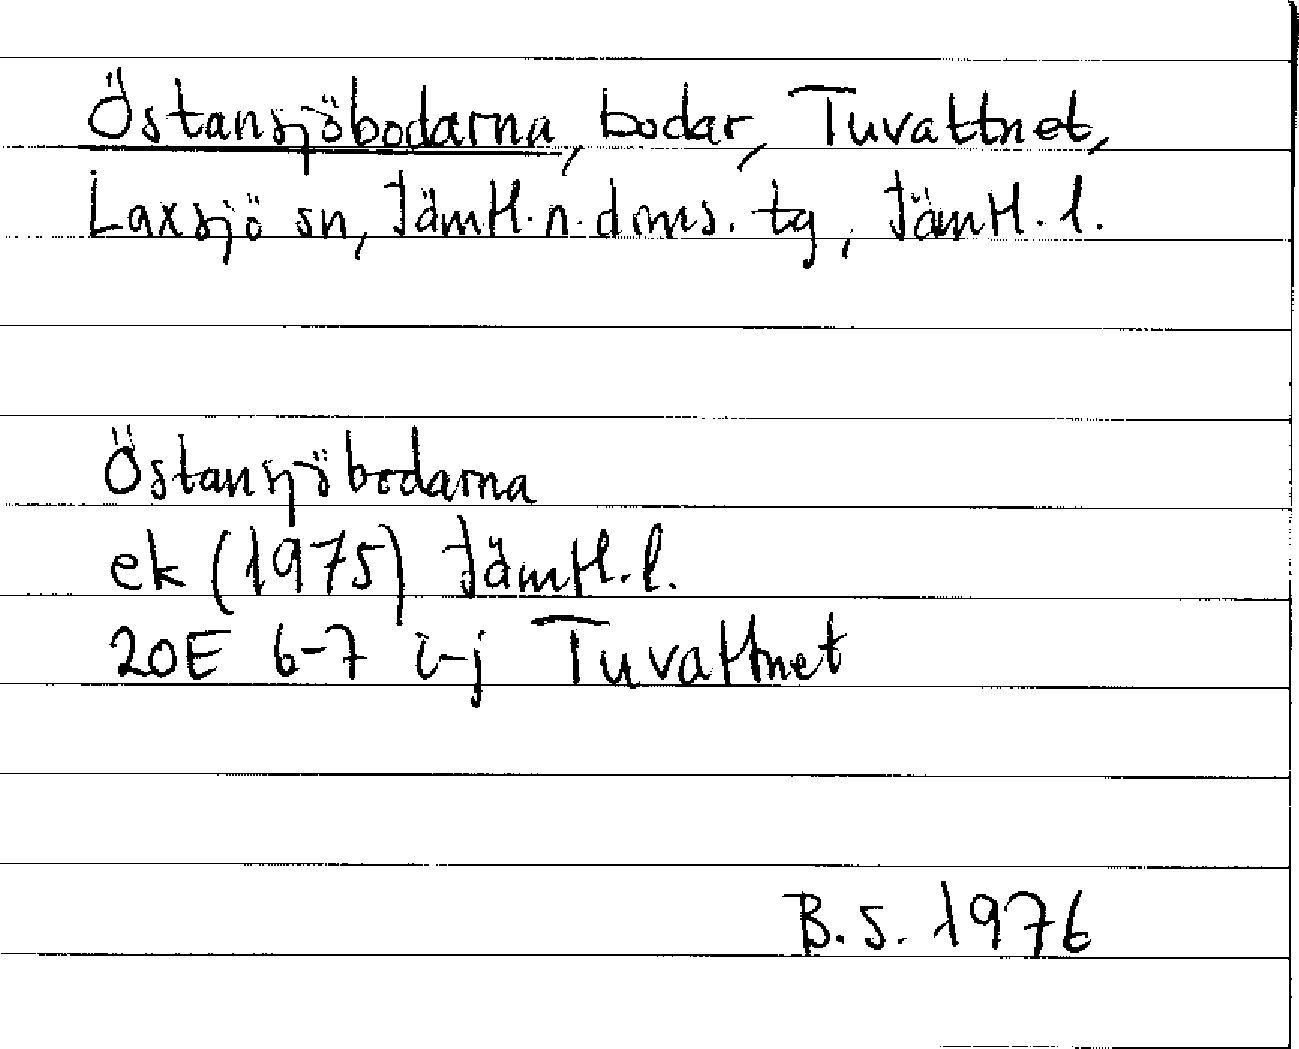 Östansjöbodarna, bodar, Tuvattnet,
Laxsjö sn, Jämtl. n. doms. tg, Jämtl. l.
Östansjöbodarna
ek (1975) Jämtl. l.
20E 6-7 i-j Tuvattnet
B.S. 1976